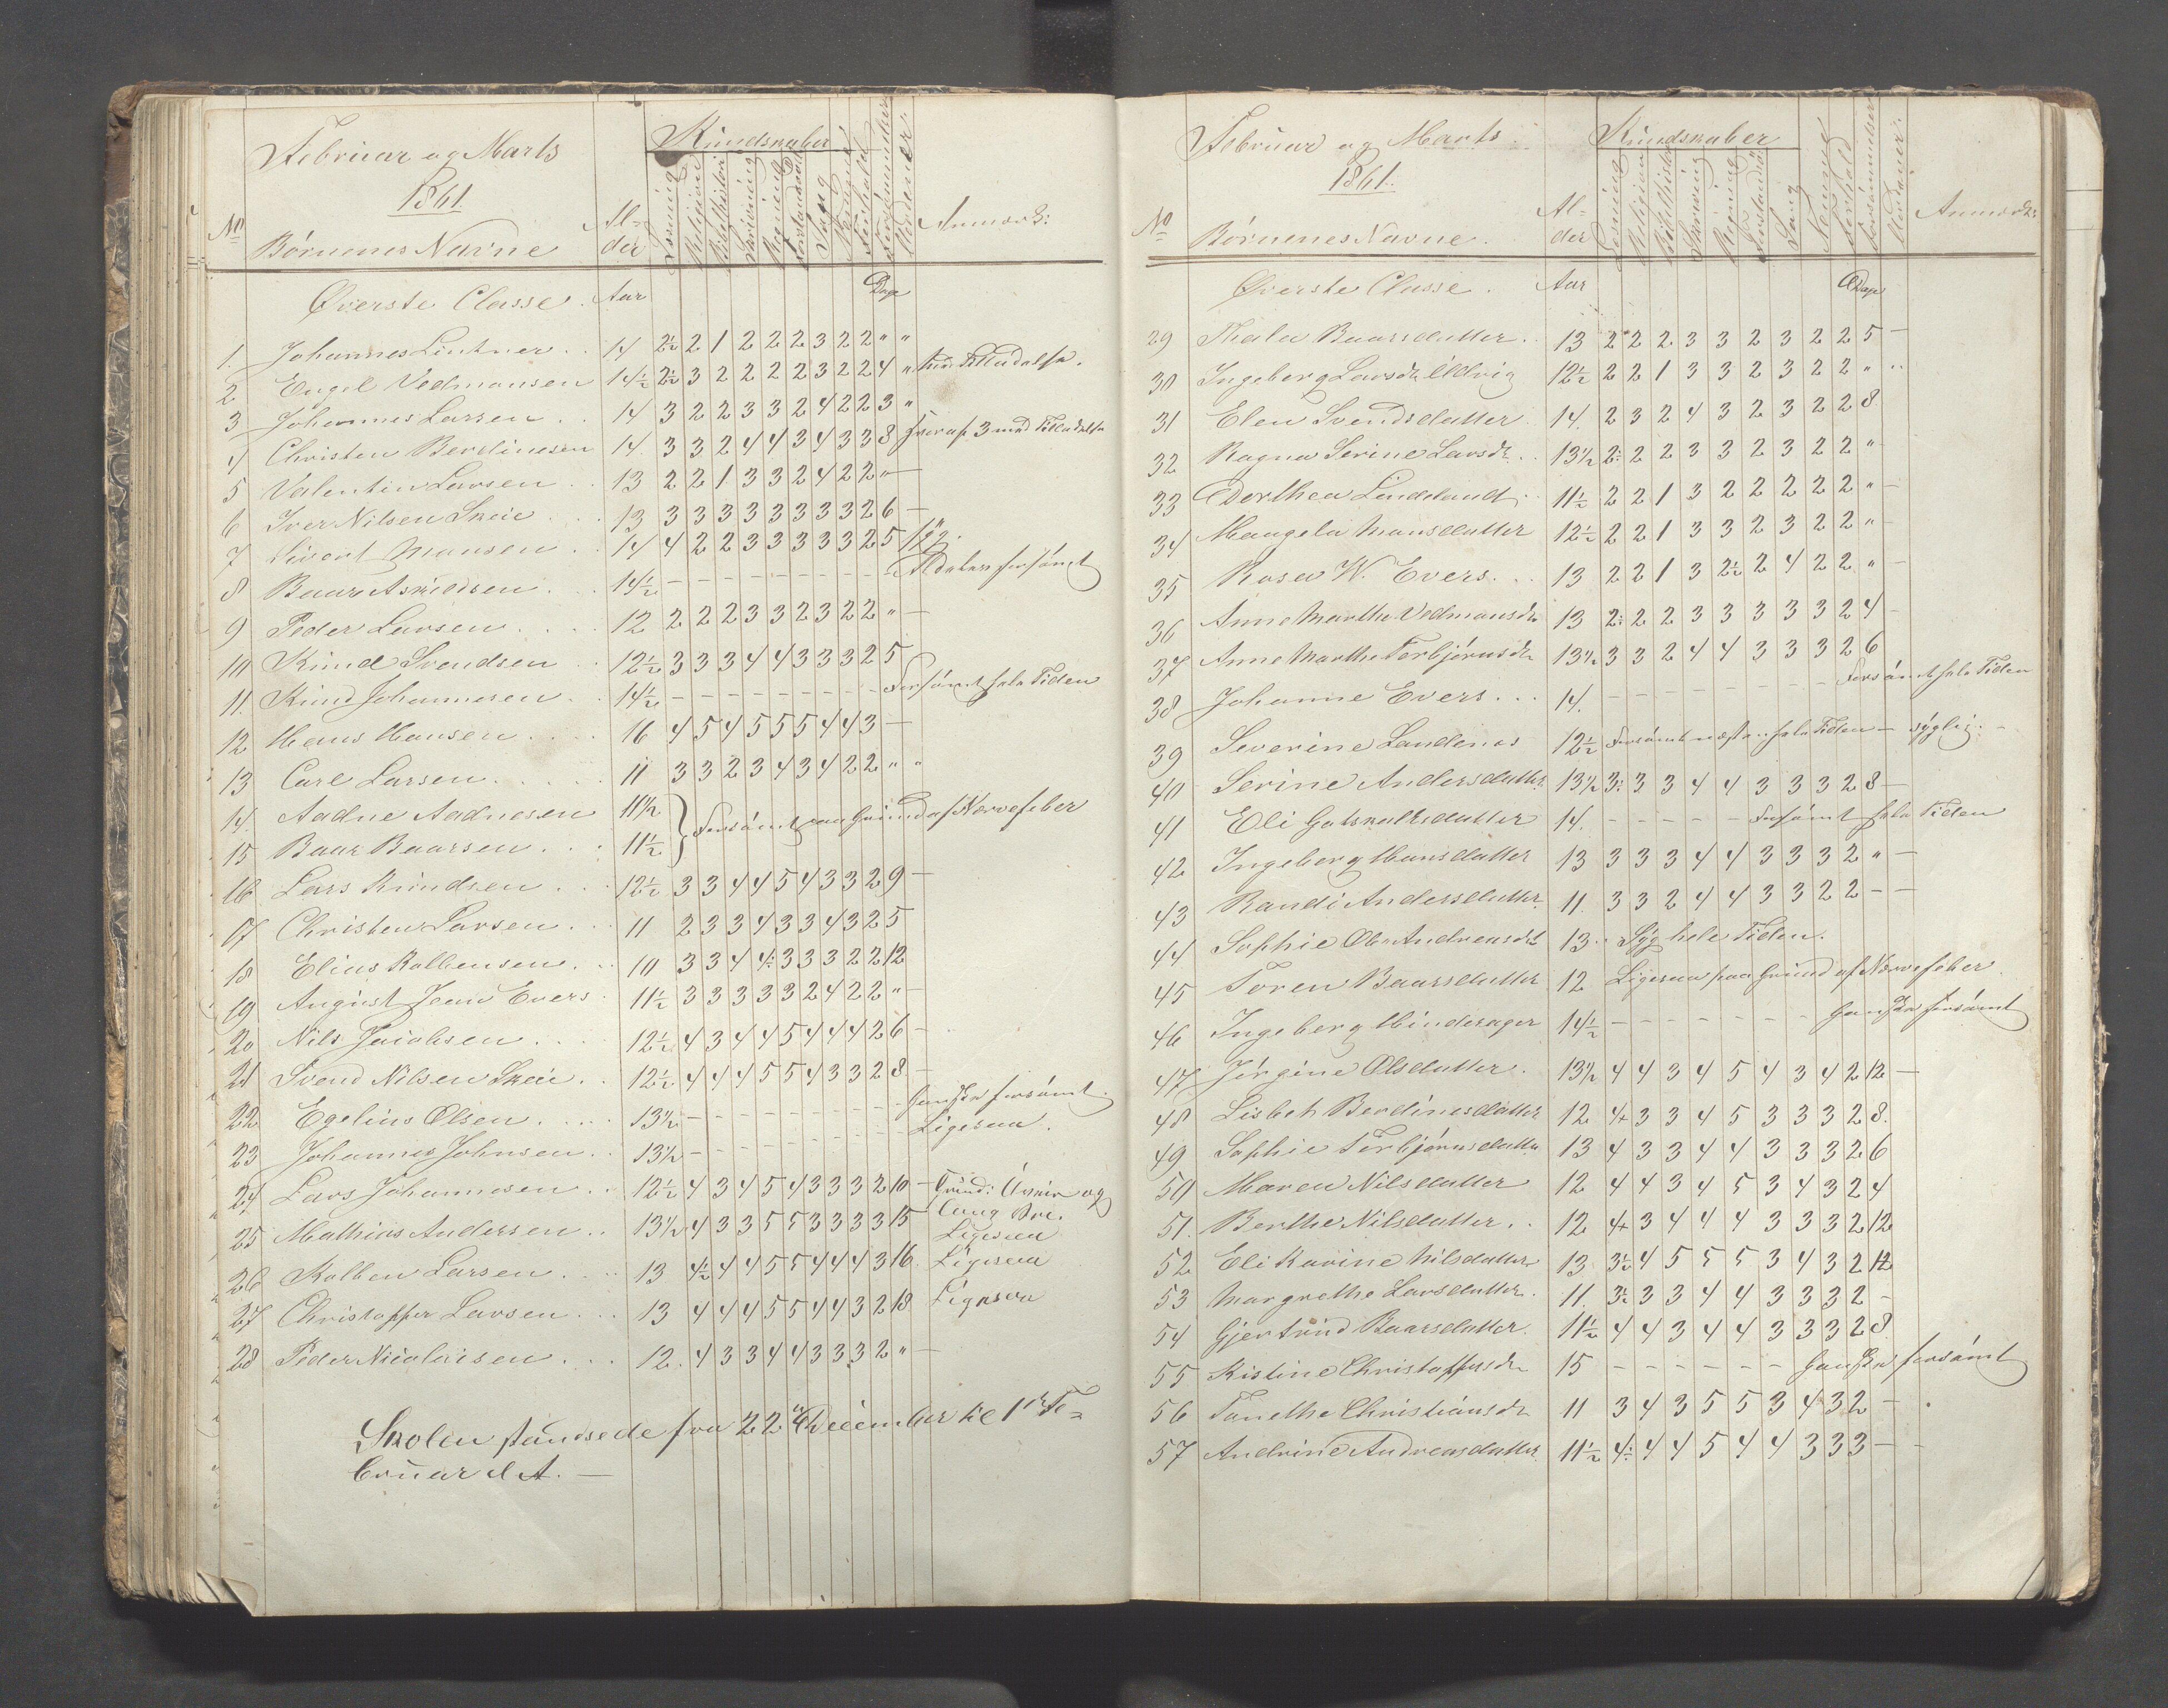 Februar og Marts
1861
Kundskaber
No
Børnenes Navne
Al-
der
Læsning
Religion
Bibelhistori
Skrivning
Regning
Forstandsøv
Sang
Forhold
Forsømmelser
Anmærk:
Øverste Classe. Aar Dage
1. Johannes Lintner . . 14 2½ 2 1 2 2 2 3 2 2 " "
2 Engel Vedmansen 14½ 2½ 3 2 2 2 2 3 2 2 4 " Tilladelse.
3 Johannes Larsen . . 14 3 2 2 3 3 2 4 2 2 3 "
4 Christen Berdinesen 14 3 3 2 4 4 3 4 3 3 8 hvoraf 3 med Tilladelse
5 Valentin Larsen . . 13 2 2 1 3 3 2 4 2 2 " —
6 Iver Nilsen Skeie . . . 13 3 3 3 3 3 3 3 3 2 6 —
7 Sivert Mansen . . 14 4 2 2 3 3 3 3 3 2 5 Syg.
8 Baar Askildsen . . . 14½ — — — — — — — — — Aldeles forsømt
9 Peder Larsen . . . . 12 2 2 2 3 3 2 3 2 2 " —
10 Knud Svendsen . . 12½ 3 3 3 4 4 3 3 3 2 5
11. Knud Johannesen . 14½ — — — — — — — — Forsømt hele Tiden
12 Hans Hansen . . . . 16 4 5 4 5 5 5 4 4 3 —
13 Carl Larsen . . . . . 11 3 3 2 3 4 3 4 2 2 " "
14. Aadne Aadnesen 11½ } Forsømt paa Grund af Nervefeber
15 Baar Baarsen . . . 11½
16 Lars Knudsen . . . 12½ 3 3 4 4 5 4 3 3 2 9 —
17 Christen Larsen . . 11 2 3 3 4 3 3 4 3 2 5
18 Elias Kolbensen . . 10 3 3 4 4½ 3 3 3 2 2 12
19 August Jean Evers . 11½ 3 3 3 3 3 2 4 2 2 " —
20 Nils Jacobsen . . . . 12½ 4 3 4 4 5 4 4 4 2 6 —
21 Svend Nilsen Skeie . . 12½ 4 4 4 5 5 4 3 3 2 8 —
22 Egelius Olsen . . . . . 13½ — — — — — — — — — Ganske forsømt.
23 Johannes Johnsen . . 13½ — — — — — — — — — Ligesaa.
24 Lars Johannesen . . 12½ 4 3 4 5 4 3 3 3 2 10 — Grund: Uveir og
25 Mathias Andersen . . 13½ 4 3 3 5 5 3 3 3 3 15 lang Vei. Ligesaa
26 Kolben Larsen . . . . 13 4½ 4 4 5 5 4 4 4 3 16 Ligesaa
27 Christopher Larsen . . . 13 4 4 4 5 5 4 4 3 2 18 Ligesaa
28 Peder Nicolaisen . . . 12. 4 3 3 4 4 3 3 3 2 " —
Skolen standsede fra 22de December til 1ste Fe-
bruar d. A. —
Februar og Marts.
1861.
Kundskaber
No
Børnenes Navne.
Al-
der
Læsning
Religion
Bibelhistor
Skrivning
Regning
Forstandsøv
Sang
Forhold
Forsømmelser
Anmærk:
Øverste Classe. Aar Dage
29 Thala Baarsdatter . . 13 2 2 2 3 3 2 3 2 2 5 —
30 Ingeborg Larsdr 12½ 2 2 1 3 3 2 3 2 2 " "
31 Elen Svendsdatter . 14. 2 3 2 4 3 2 3 2 2 8
32 Ragna Serine Larsdr. . 13½ 2½ 2 2 3 3 2 3 2 2 "
33 Dorthea Lindeland . 11½ 2 2 1 3 2 2 2 2 2 " —
34 Maugela Mansdatter 12½ 2 2 1 3 3 2 3 2 2 " —
35 Rosa W. Evers. . . 13 2 2 1 3 2½ 2 4 2 2 " —
36 Anne Marthe Vedmansdr 13 2½ 2 2 3 3 3 3 3 2 4 —
37 Anne Marthe Torbjørnsdr 13½ 3 3 2 4 4 3 3 3 2 6
38 Johanne Evers . . . 14. — — — — — — — — Forsømt hele Tiden
39 Severine Landenes 12½ Forsømt næsten hele Tiden — sygelig. —
40 Serine Andersdatter. 13½ 3½ 3 3 4 4 3 3 3 2 8 —
41 Eli Gotskalksdatter 14. — — — — — Forsømt hele Tiden
42 Ingeborg Hansdatter 13 3 3 3 4 4 3 3 3 2 " —
43 Randi Andersdatter. 11. 3 3 2 4 4 3 3 2 2 — —
44 Sophie Andreasdr 13. Syg hele Tiden.
45 Toren Baarsdatter 12 Ligesaa paa Grund af Nervefeber
46 Ingeborg Hinderager 14½ — — — — — — — — Ganske forsømt
47 Jørgine Olsdatter . 13½ 4 4 3 4 5 4 3 4 2 12 —
48 Lisbeth Berdinesdatter 12 4+ 3 3 4 5 3 3 3 2 8.
49 Sophie Torbjørnsdatter 13 4 3 3 4 4 3 3 3 2 6
50 Maren Nilsdatter 12 4 4 3 4 5 3 4 3 2 4
51. Berthe Nilsdatter . . 12 4+ 3 4 4 4 3 3 3 2 12
52 Eli Karine Nilsdatter 13 3½ 4 5 5 5 3 4 3 2 12
53 Margrethe Larsdatter . 11. 3½ 3 3 4 4 3 3 3 2 —
54 Gjertrud Baarsdatter. 11½ 4 4 3 4 4 3 3 3 2 8
55 Kistine Christoffersdr 15 — — — — — — Ganske forsømt
56 Tanethe Christiansdr 11 3 4 3 5 5 3 4 3 2 —
57 Andrine Andreasdatter. 11½ 4½ 4 4 5 4 4 3 3 3 — —